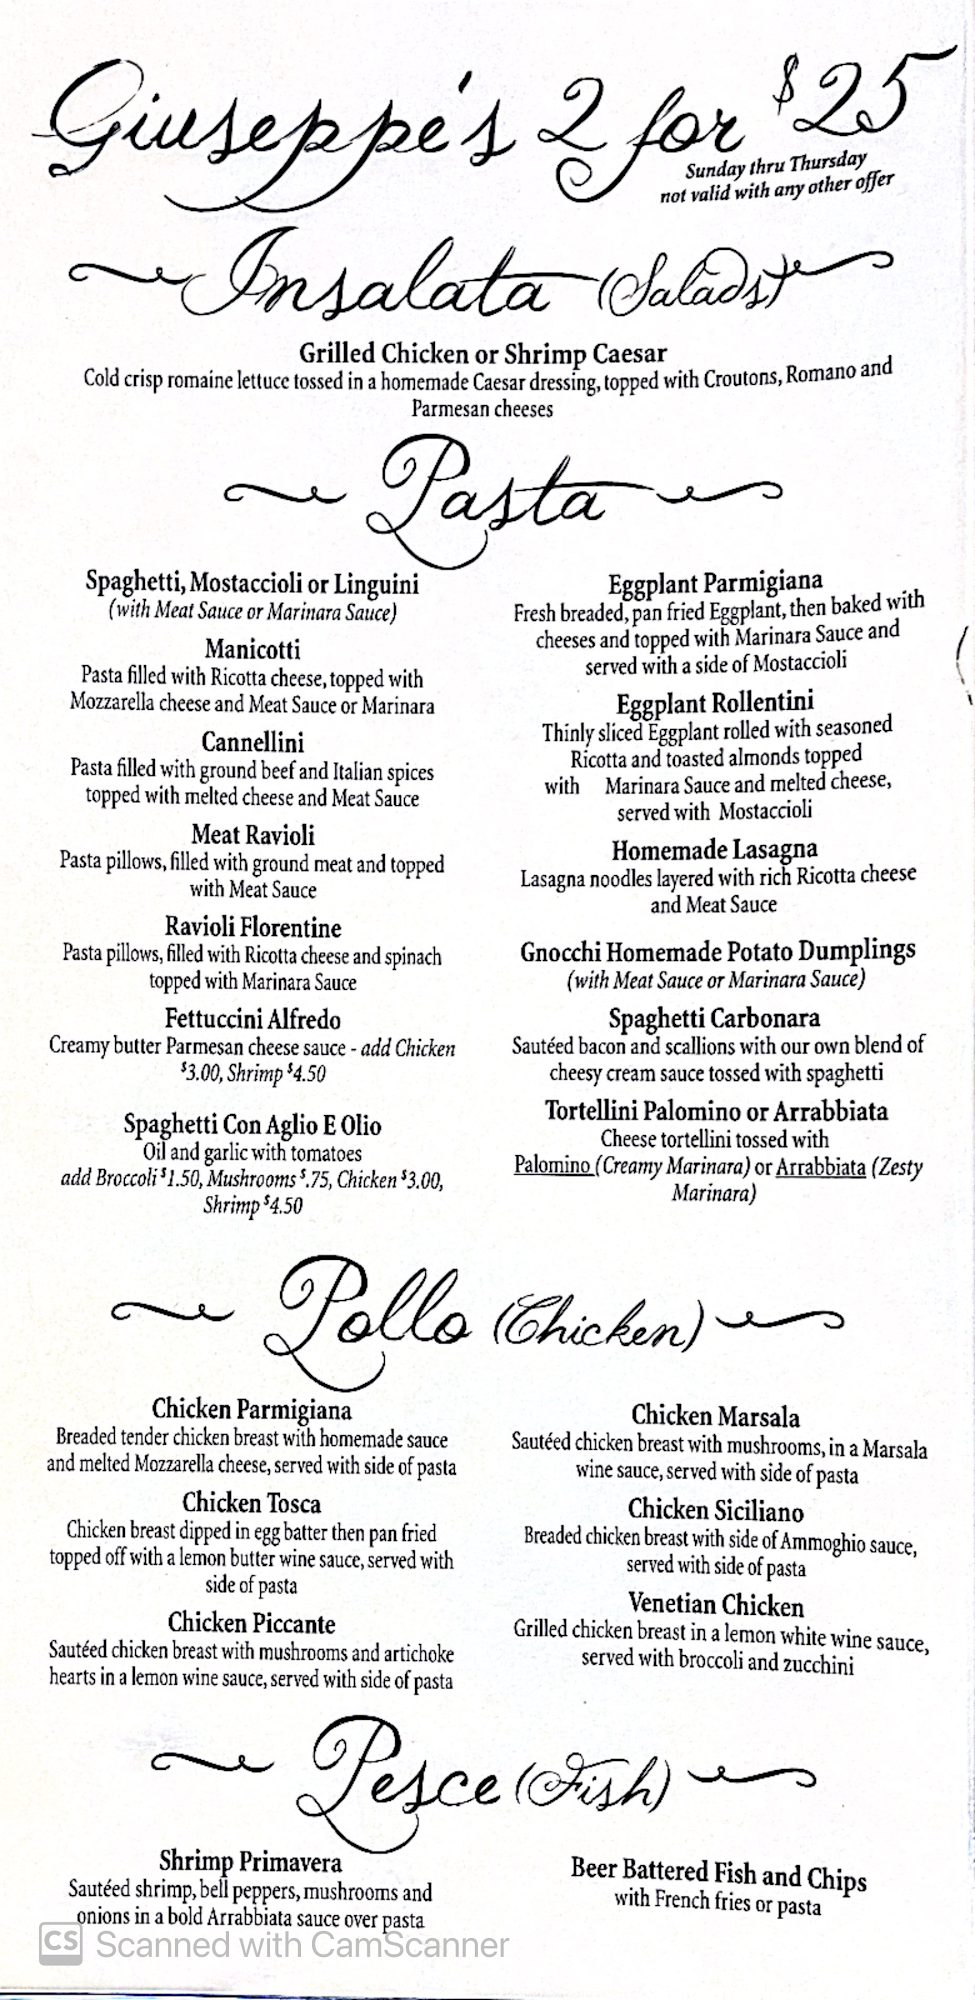 Giuseppe's 2 for $25
Sunday thru Thursday
not valid with any other offer
Insalata (Salads)
Grilled Chicken or Shrimp Caesar
Cold crisp romaine lettuce tossed in a homemade Caesar dressing, topped with Croutons, Romano and
Parmesan cheeses
Pasta
Spaghetti, Mostaccioli or Linguini
(with Meat Sauce or Marinara Sauce)
Manicotti
Pasta filled with Ricotta cheese, topped with
Mozzarella cheese and Meat Sauce or Marinara
Cannellini
Pasta filled with ground beef and Italian spices
topped with melted cheese and Meat Sauce
Meat Ravioli
Pasta pillows, filled with ground meat and topped
with Meat Sauce
Ravioli Florentine
Pasta pillows, filled with Ricotta cheese and spinach
topped with Marinara Sauce
Fettuccini Alfredo
Creamy butter Parmesan cheese sauce - add Chicken
$3.00, Shrimp $4.50
Spaghetti Con Aglio E Olio
Oil and garlic with tomatoes
add Broccoli $1.50, Mushrooms $.75, Chicken $3.00,
Shrimp $4.50
Eggplant Parmigiana
Fresh breaded, pan fried Eggplant, then baked with
cheeses and topped with Marinara Sauce and
served with a side of Mostaccioli
Eggplant Rollentini
Thinly sliced Eggplant rolled with seasoned
Ricotta and toasted almonds topped
with Marinara Sauce and melted cheese,
served with Mostaccioli
Homemade Lasagna
Lasagna noodles layered with rich Ricotta cheese
and Meat Sauce
Gnocchi Homemade Potato Dumplings
(with Meat Sauce or Marinara Sauce)
Spaghetti Carbonara
Sautéed bacon and scallions with our own blend of
cheesy cream sauce tossed with spaghetti
Tortellini Palomino or Arrabbiata
Cheese tortellini tossed with
Palomino (Creamy Marinara) or Arrabbiata (Zesty
Marinara)
Pollo (Chicken)
Chicken Parmigiana
Breaded tender chicken breast with homemade sauce
and melted Mozzarella cheese, served with side of pasta
Chicken Tosca
Chicken breast dipped in egg batter then pan fried
topped off with a lemon butter wine sauce, served with
side of pasta
Chicken Piccante
Sautéed chicken breast with mushrooms and artichoke
hearts in a lemon wine sauce, served with side of pasta
Chicken Marsala
Sautéed chicken breast with mushrooms, in a Marsala
wine sauce, served with side of pasta
Chicken Siciliano
Breaded chicken breast with side of Ammoghio sauce,
served with side of pasta
Venetian Chicken
Grilled chicken breast in a lemon white wine sauce,
served with broccoli and zucchini
Pesce (Fish)
Shrimp Primavera
Sautéed shrimp, bell peppers, mushrooms and
onions in a bold Arrabbiata sauce over pasta
Beer Battered Fish and Chips
with French fries or pasta
CS Scanned with CamScanner